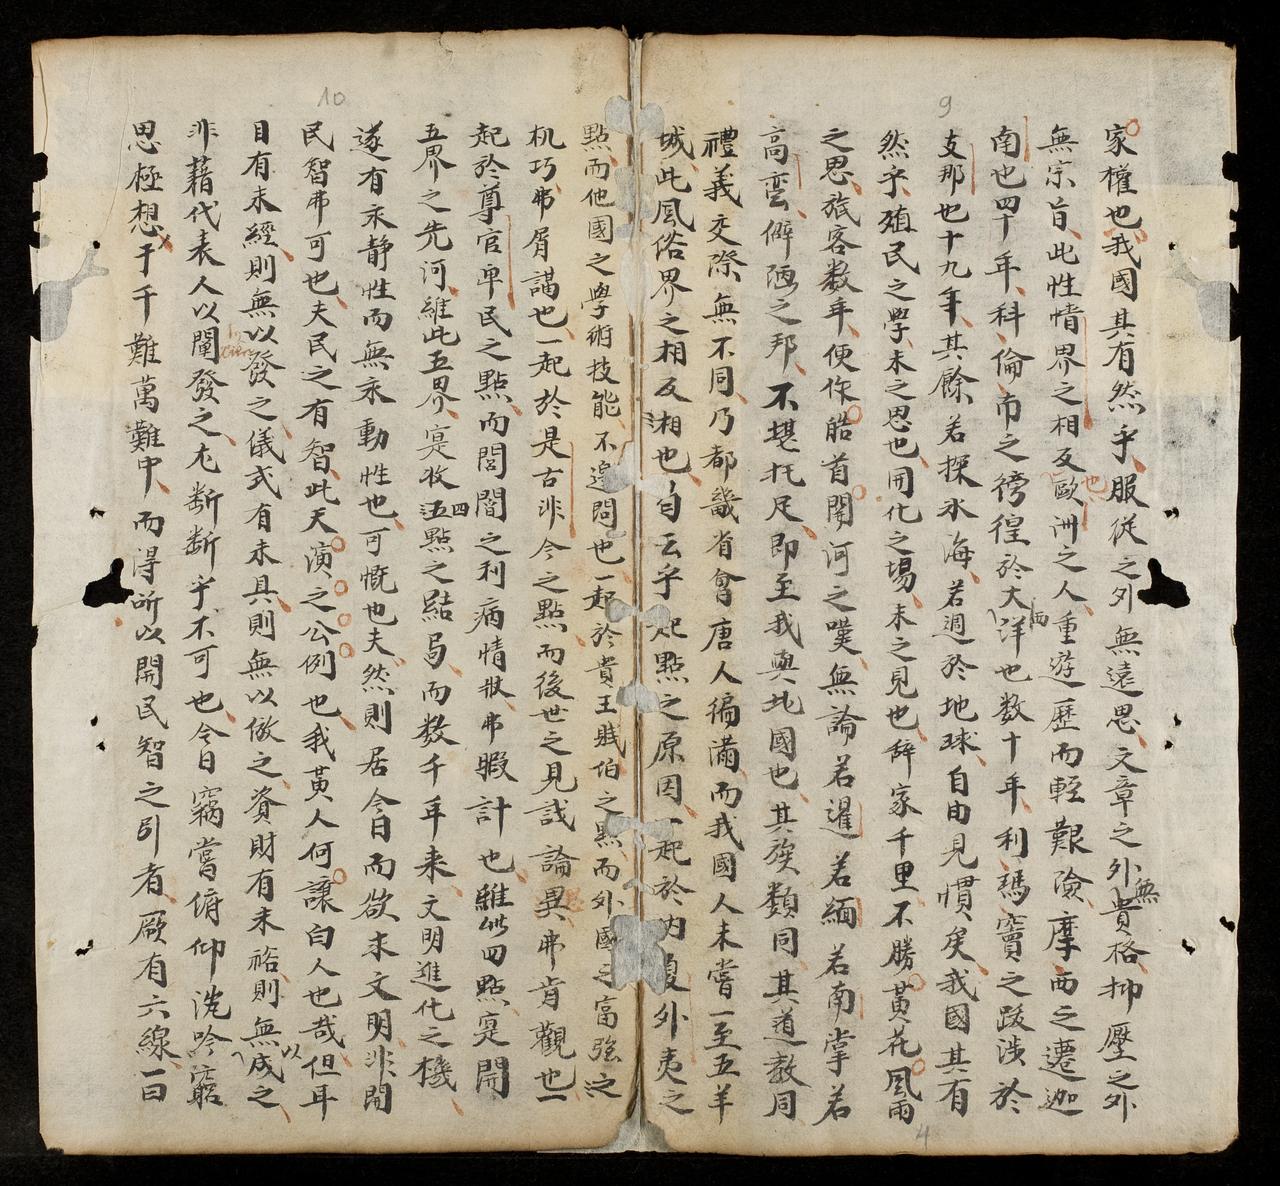 9
家權也我國其有然乎服從之外無遠思文章之外無貴格抑壓之外
無宗旨此性情界之相反也歐洲之人重遊歷而輕艱險摩西之遷迦
南也四十年科倫布之徬徨於大西洋也数十年利瑪竇之跋涉於
支那也十九年其餘若探水海若週於地球自由見慣矣我國其有
然乎殖民之學未之思也開化之場未之見也辞家千里不勝黃花風雨
之思旅客数年便作皓首關河之嘆無論若暹若緬若南掌若
高蛮僻陋之邦不堪托足即至我與北國也其族類同其道教同
禮義交際無不同乃都畿省會唐人徧滿而我國人未嘗一至五羊
城此風俗界之相反也自云乎起點之原因一起於内夏外夷之
4
10
點而他國之學術技能不遑問也一起於貴王賤伯之點而外國之富強之
机巧弗屑講也一起於是古非今之點而後世之見識論異弗肯觀也一
起於尊官卑民之點而閭閻之利病情狀弗暇計也雖此四點寔開
五界之先河維此五界寔收四點之結局而数千年来文明進化之機
遂有永静性而無永動性也可慨也夫然則居今日而欲求文明非開
民智弗可也夫民之有智此天演之公例也我黃人何讓白人也哉但耳
目有未經則無以發之儀式有未具則無以倣之資財有未裕則無以成之
非藉代表人以闡發之尤斷斷乎不可也今日竊嘗俯仰沈吟窮
思極想于千難萬難中而得所以開民智之引者厥有六線一曰